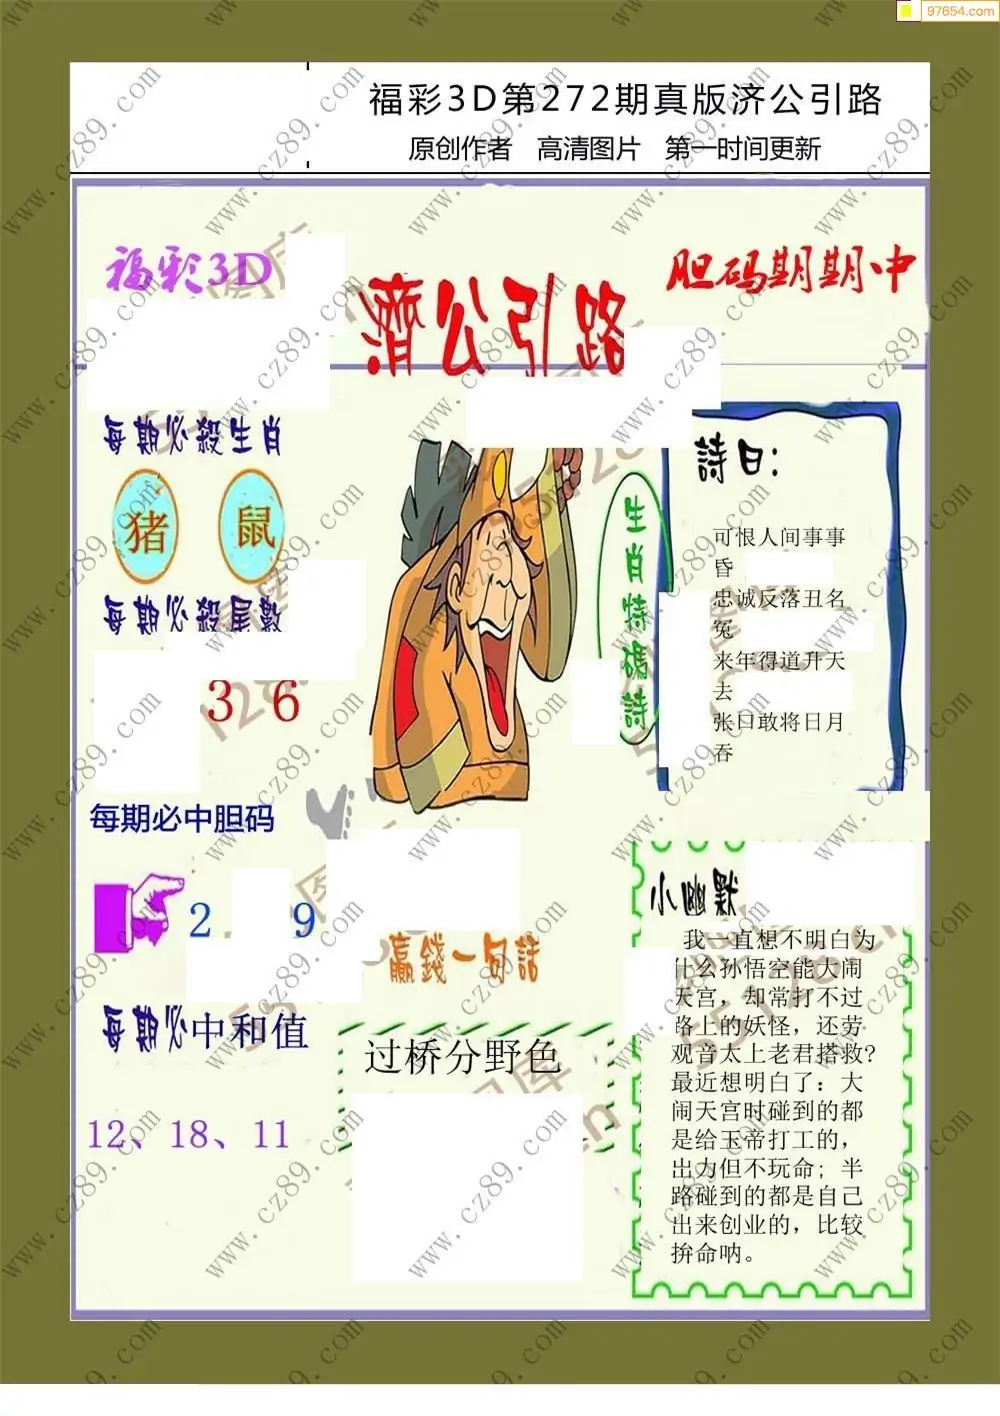 97654.com
福彩3D第272期真版济公引路
原创作者 高清图片 第一时间更新
福彩3D
濟公引路
胆码期期中
每期必殺生肖
猪 鼠
每期必殺尾數
3 6
每期必中胆码
2 9
每期必中和值
12、18、11
生肖特碼詩
詩曰:
可恨人间事事
昏
忠诚反落丑名
冤
来年得道升天
去
张口敢将日月
吞
贏錢一句話
过桥分野色
小幽默
我一直想不明白为
什么孙悟空能大闹
天宫，却常打不过
路上的妖怪，还劳
观音太上老君搭救?
最近想明白了：大
闹天宫时碰到的都
是给玉帝打工的，
出力但不玩命；半
路碰到的都是自己
出来创业的，比较
拚命呐。
www.cz89.com